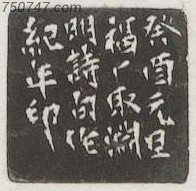 750747.com
癸酉元旦
福厂取淵
明詩句作
紀年印
750747.com